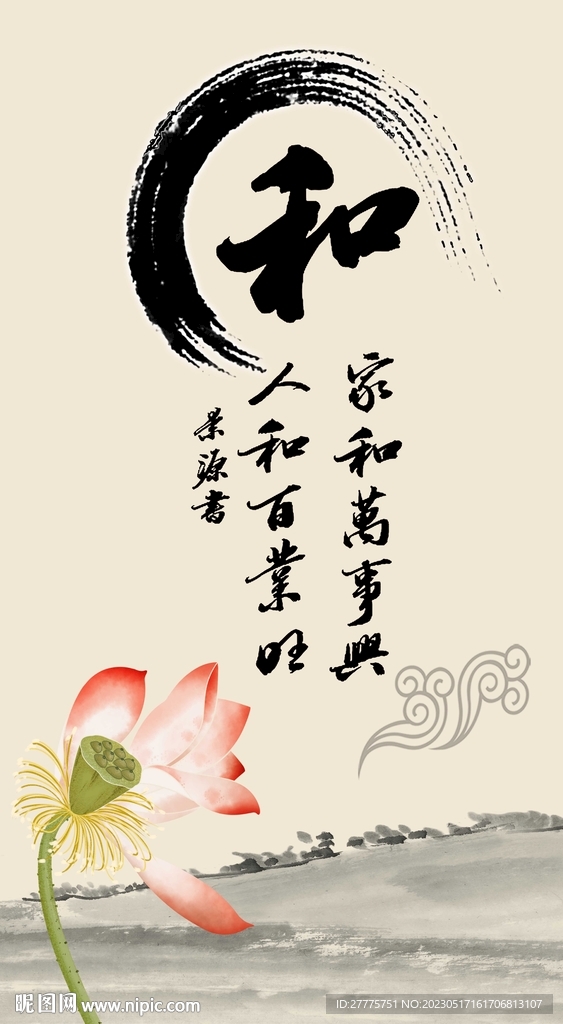 和
家和萬事興
人和百業旺
景源書
昵图网 www.nipic.com
ID:27775751 NO:20230517161706813107